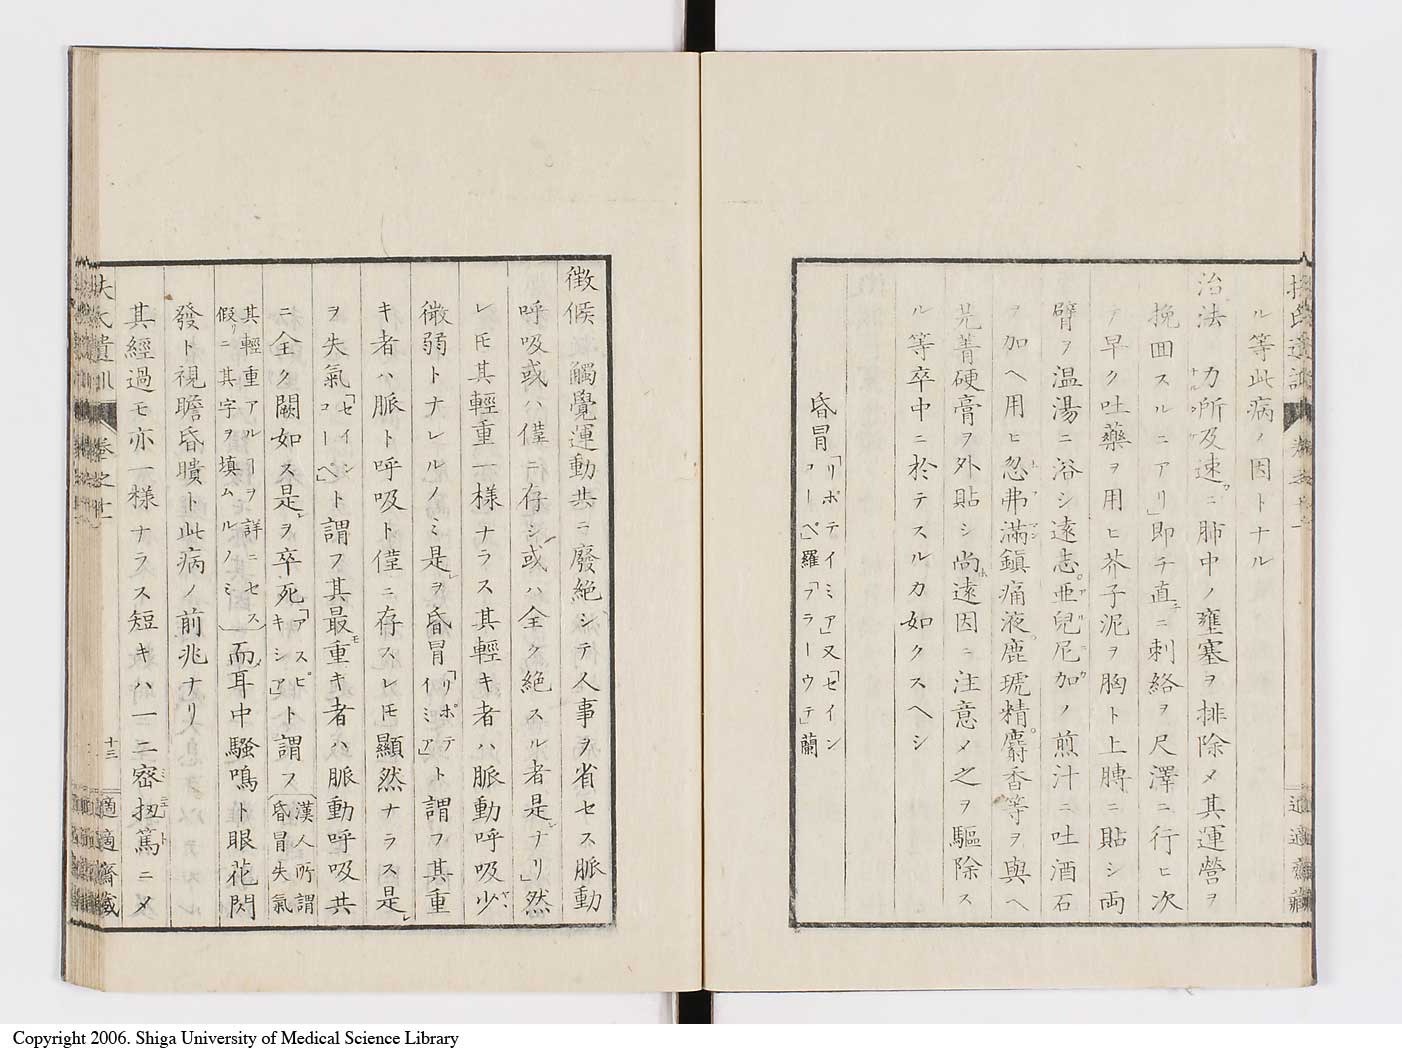 ル等此病ノ因トナル
治法 力所及速ニ肺中ノ壅塞ヲ排除メ其運營ヲ
挽回スルニアリ」即チ直ニ刺絡ヲ尺澤ニ行ヒ次
テ早ク吐藥ヲ用ヒ芥子泥ヲ胸ト上膊ニ貼シ両
臂ヲ温湯ニ浴シ遠志亜兒尼加ノ煎汁ニ吐酒石
ヲ加ヘ用ヒ忽弗滿鎮痛液鹿琥精麝香等ヲ與ヘ
芫菁硬膏ヲ外貼シ尚遠因ニ注意メ之ヲ驅除ス
ル等卒中ニ於テスルカ如クスヘシ
昏冒「リポテイミア」又「セインコーペ」羅「フラーウテ」蘭
徴候 觸覺運動共ニ廢絶シテ人事ヲ省セス脈動
呼吸或ハ僅ニ存シ或ハ全ク絶スル者是ナリ」然
レ𪜈其輕重一様ナラス其輕キ者ハ脈動呼吸少
微弱トナレルノミ是ヲ昏冒「リポテイミア」ト謂フ其重
キ者ハ脈ト呼吸ト僅ニ存スレ𪜈顯然ナラス是
ヲ失氣「セインコーペ」ト謂フ其最重キ者ハ脈動呼吸共
ニ全ク闕如ス是ヲ卒死「アスピキシア」ト謂フ漢人所謂昏冒失氣
其輕重アルヿヲ詳ニセス假リニ其字ヲ塡ムルノミ」而耳中騷鳴ト眼花閃
發ト視瞻昏瞶ト此病ノ前兆ナリ
其經過モ亦一様ナラス短キハ一二密扨篤ニメ
扶氏遺訓 巻之十一 十三 適適齋藏